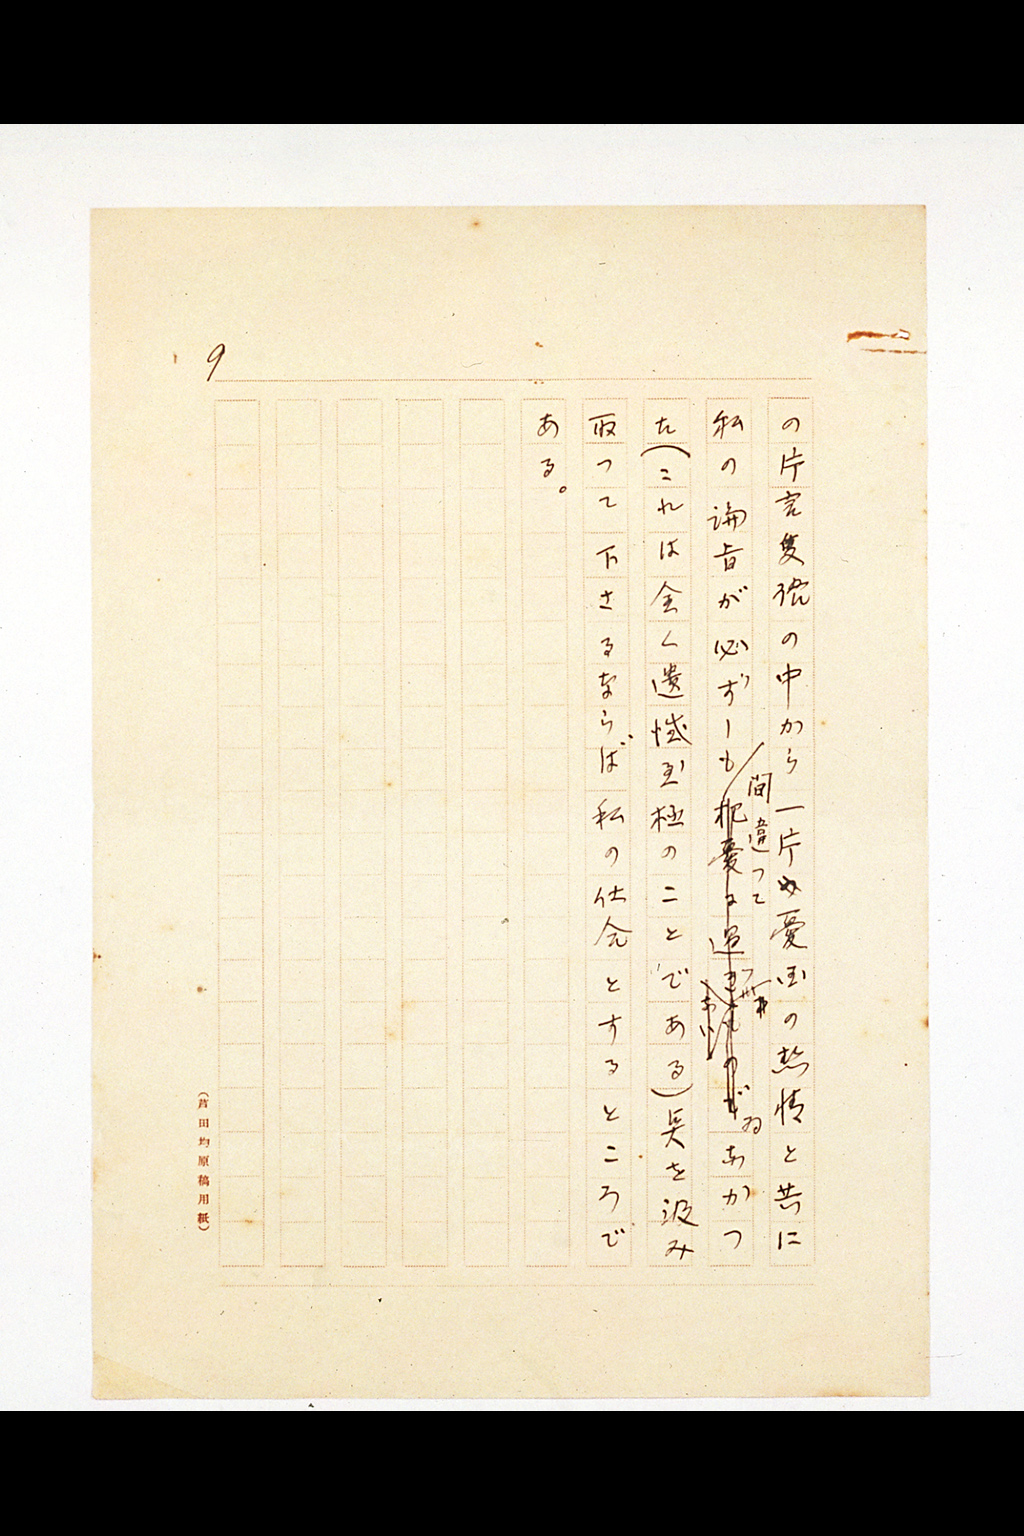 9
の片言隻語の中から一片の憂国の熱情と共に
私の論旨が必ずしも間違つてゐなかつ
た(これは全く遺憾至極のことである)点を汲み
取つて下さるならば私の仕合とするところで
ある。
(芦田均原稿用紙)